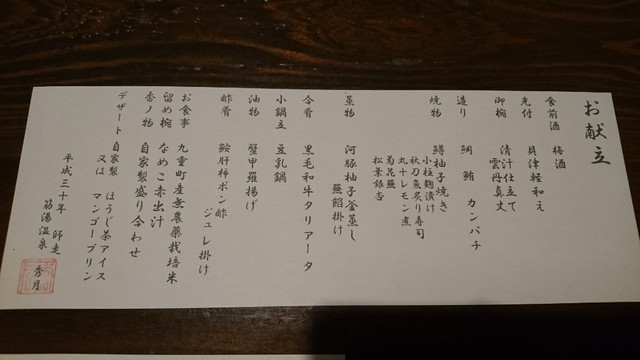 お献立
食前酒 梅酒
先付 貝津軽和え
御椀 清汁仕立て
雲丹真丈
造り 鯛 鮪 カンパチ
焼物 鱒柚子焼き
小柱麹漬け
秋刀魚炙り寿司
丸十レモン煮
菊花蕪
松葉銀杏
蒸物 河豚柚子釜蒸し
蕪餡掛け
合肴 黒毛和牛タリアータ
小鍋立 豆乳鍋
油物 蟹甲羅揚げ
酢肴 鮟肝柿ポン酢
ジュレ掛け
お食事 九重町産無農薬栽培米
留め椀 なめこ赤出汁
香ノ物 自家製盛り合わせ
デザート 自家製 ほうじ茶アイス
又は マンゴープリン
平成三十年 師走
筋湯温泉 秀月